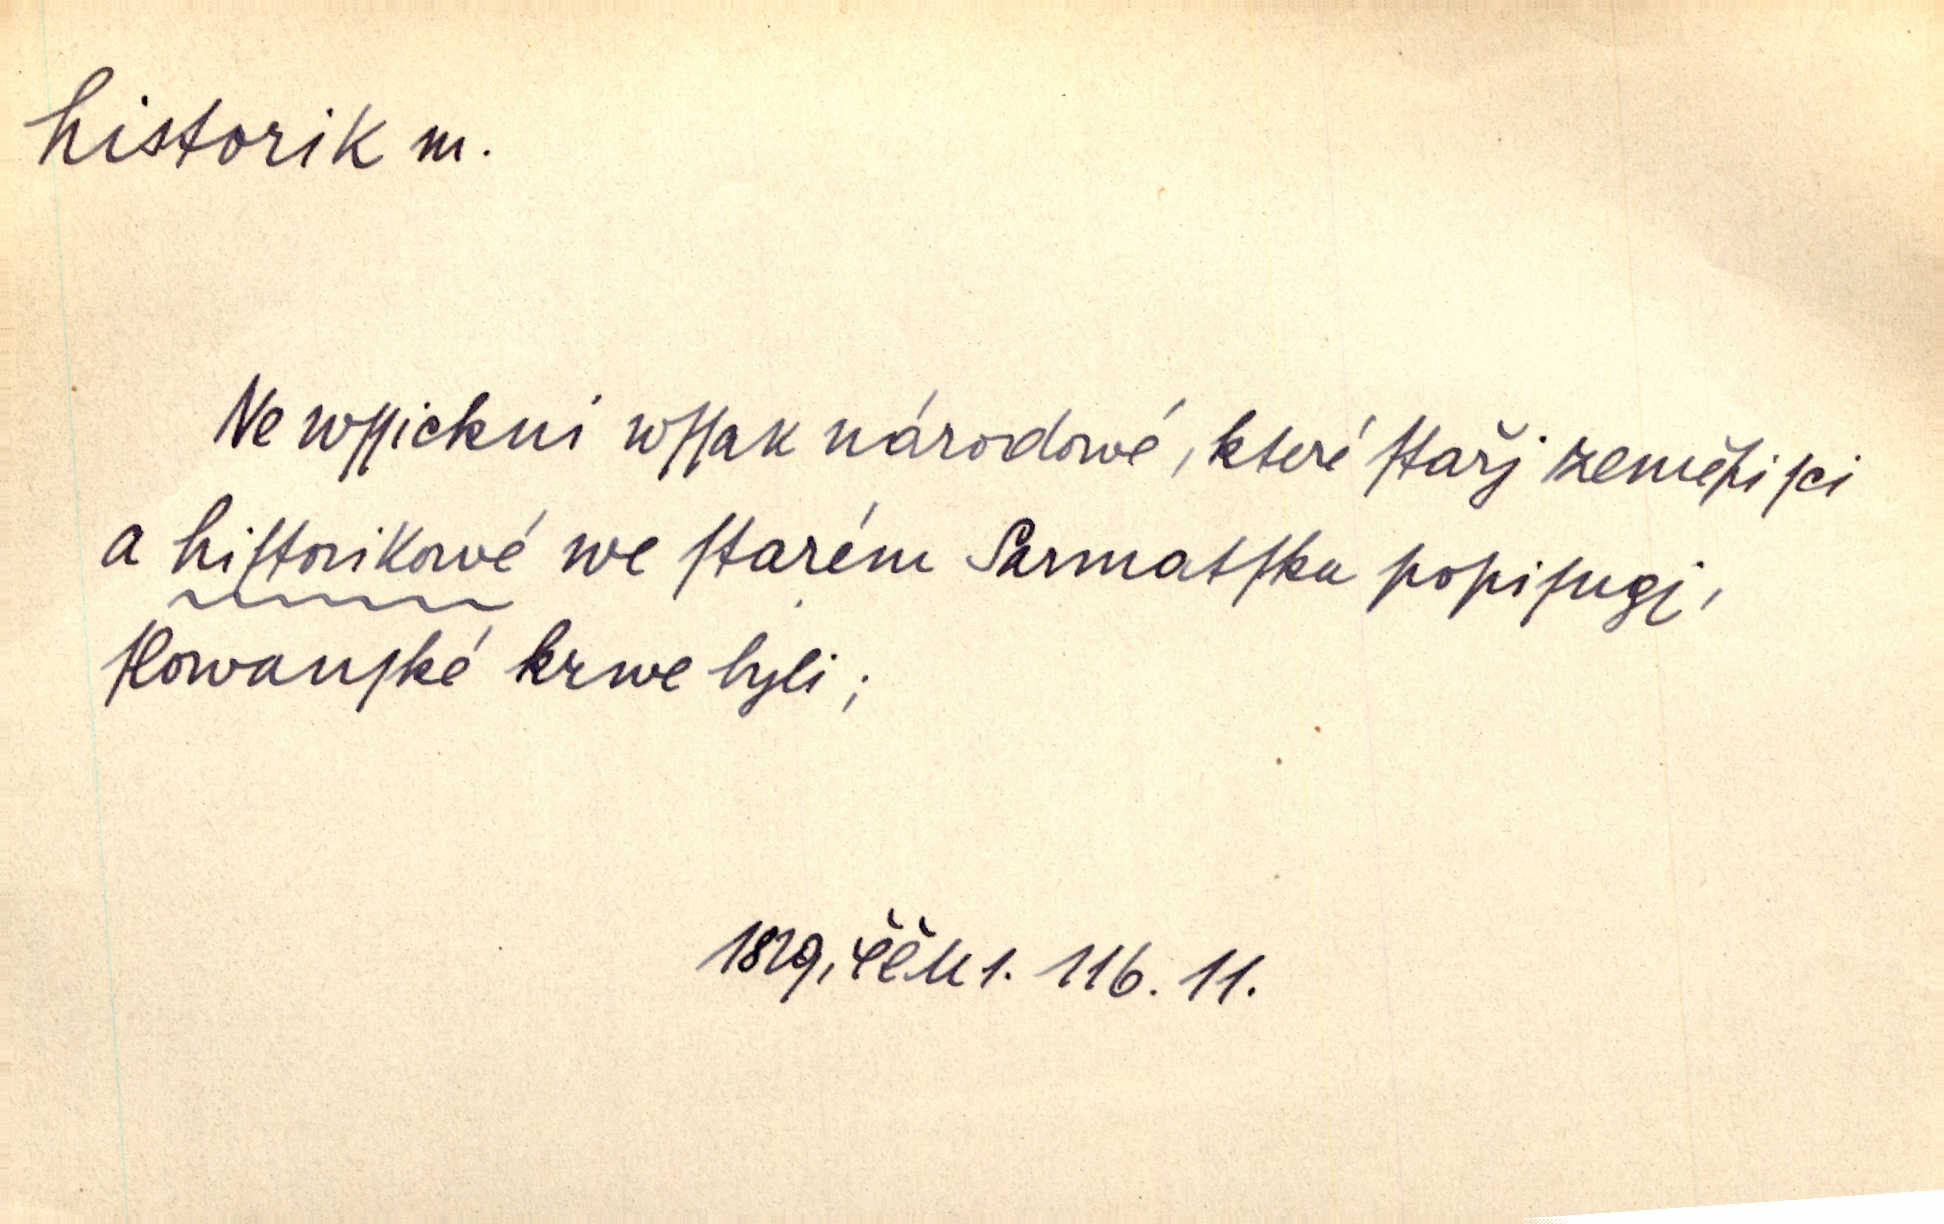 historik m.
Ne wſſickni wſſak národowé, které ſtařj zeměpiſci
a hiſtorikowé we ſtarém Sarmatſku popiſugj,
ſlowanſké krwe byli;
1829, ČČM 1. 116. 11.